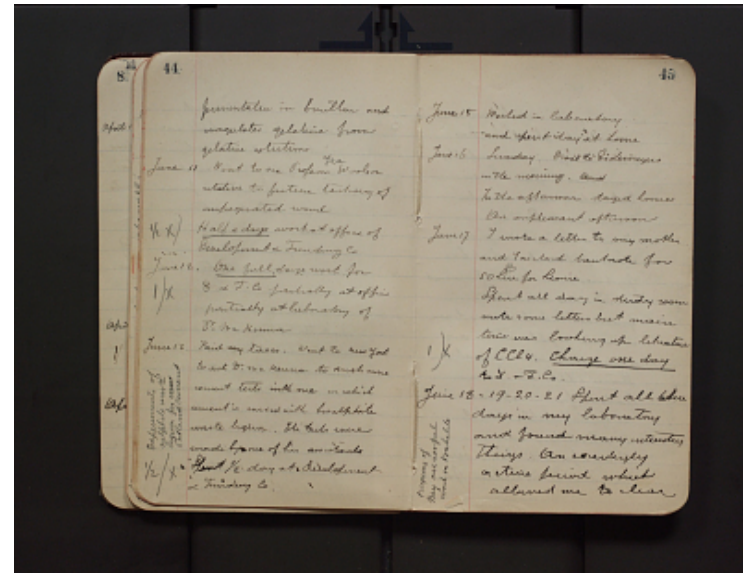 8
44
fermentation in bouillon and
coagulates gelatine from
gelatine solution
June 10 Went to see Professor Woolson
relative to fixture testing of
impregnated wood.
1/2 X) Half a days work at office of
Development & Funding Co
June 12. One full days work for
1/X D & F. Co partially at office
partially at laboratory of
Dr. McKenna
June 13 Paid my taxes. Went to New York
to ask Dr. McKenna to make some
cement tests with me in which
cement is mixed with
waste liquor. The tests were
made by one of his assistants
1/2/X Spent 1/2 day at Development
& Funding Co.
Experiments of
sulphite waste
liquor for
Portland cement
April
45
June 15 Worked in laboratory
and spent day at home
June 16 Sunday. Visit to
in the morning. and
In the afternoon stayed home
An unpleasant afternoon
June 17 I wrote a letter to my mother
and enclosed banknote for
50 Lire for
Spent all day in study room
wrote some letters but main
time was looking up literature
1/X of CCl4. Charge one day
to D - F. Co.
June 18-19-20-21 Spent all these
days in my laboratory
and found many interesting
things. An exceedingly
active period which
allowed me to clear
work on Bakelite